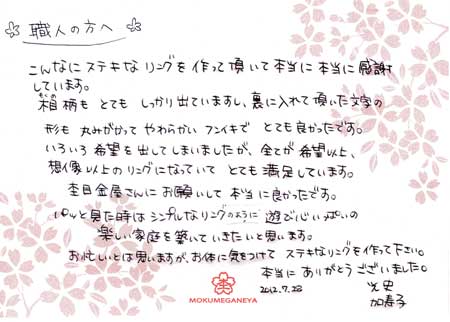 職人の方へ
こんなにステキなリングを作って頂いて本当に本当に感謝
しています。
柄もとてもしっかり出ていますし、裏に入れて頂いた文字の
形も丸みがかってやわらかいフンイキでとても良かったです。
いろいろ希望を出してしまいましたが、全てが希望以上、
想像以上のリングになっていてとても満足しています。
杢目金屋さんにお願いして本当に良かったです。
パッと見た時はシンプルなリングのように遊び心いっぱいの
楽しい家庭を築いていきたいと思います。
お忙しいとは思いますが、お体に気をつけてステキなリングを作って下さい。
本当にありがとうございました。
2012.7.28
MOKUMEGANEYA